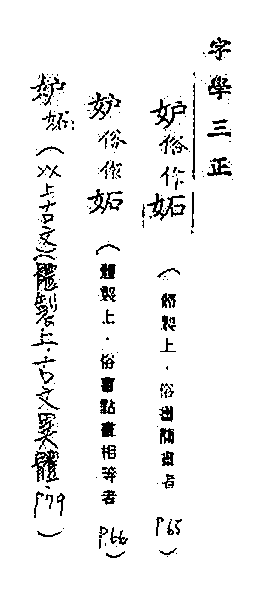 字學三正
妒俗作妬（體製上．俗書簡畫者 P.65）
妒俗作妬（體製上．俗書點畫相等者 P.66）
妒妬（以上古文）（體製上．古文異體．P.79）